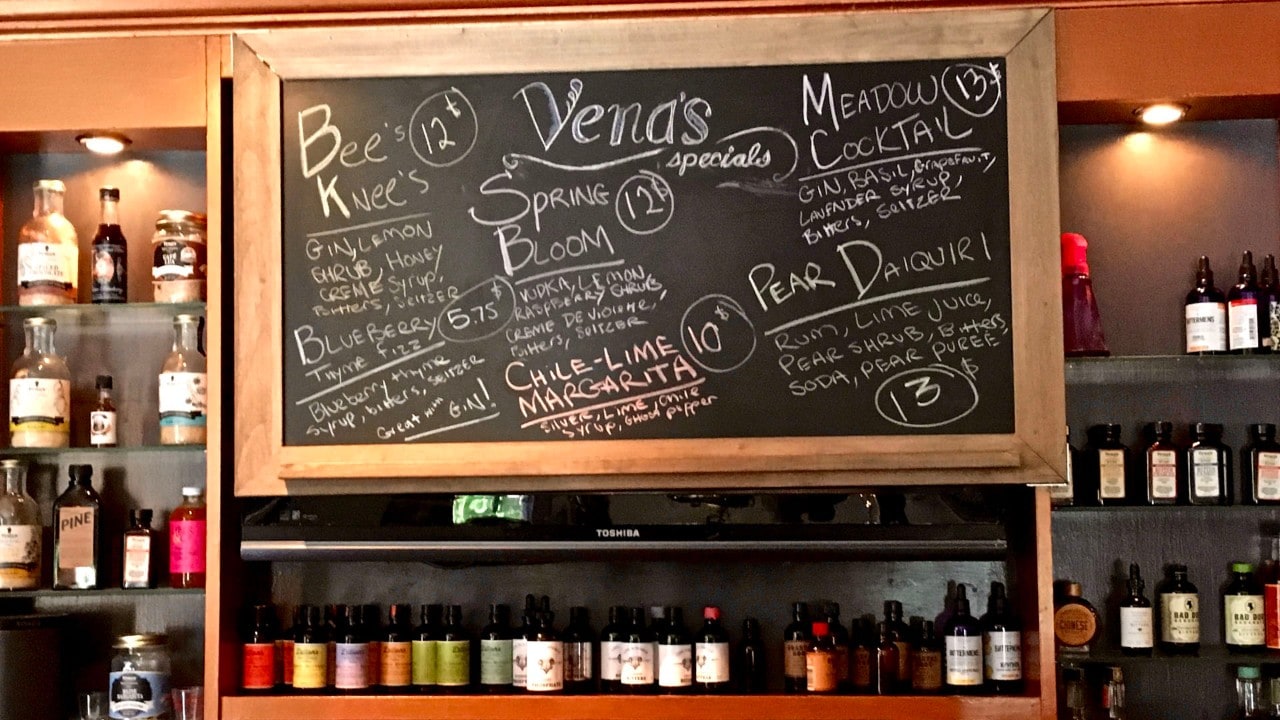 Vena's
specials
Bee's
Knee's
12$
GIN, LEMON
SHRUB, HONEY
CREME SYRUP,
BITTERS, SELTZER
BLUEBERRY
THYME FIZZ
5.75$
Blueberry thyme
syrup, bitters, SELTZER
Great with
GIN!
SPRING
BLOOM
12$
VODKA, LEMON,
RASPBERRY SHRUB
CREME DE VIOLETTE,
BITTERS, SELTZER
CHILE-LIME
MARGARITA
10$
SILVER, LIME, CHILE
SYRUP, GHOST PEPPER
MEADOW
COCKTAIL
13$
GIN, BASIL, GRAPEFRUIT,
LAVENDER SYRUP,
BITTERS, SELTZER
PEAR DAIQUIRI
RUM, LIME JUICE,
PEAR SHRUB, BITTERS,
SODA, PEAR PUREE
13$
TOSHIBA
PINE
BITTERMENS
BITTERMENS
BAD DOG